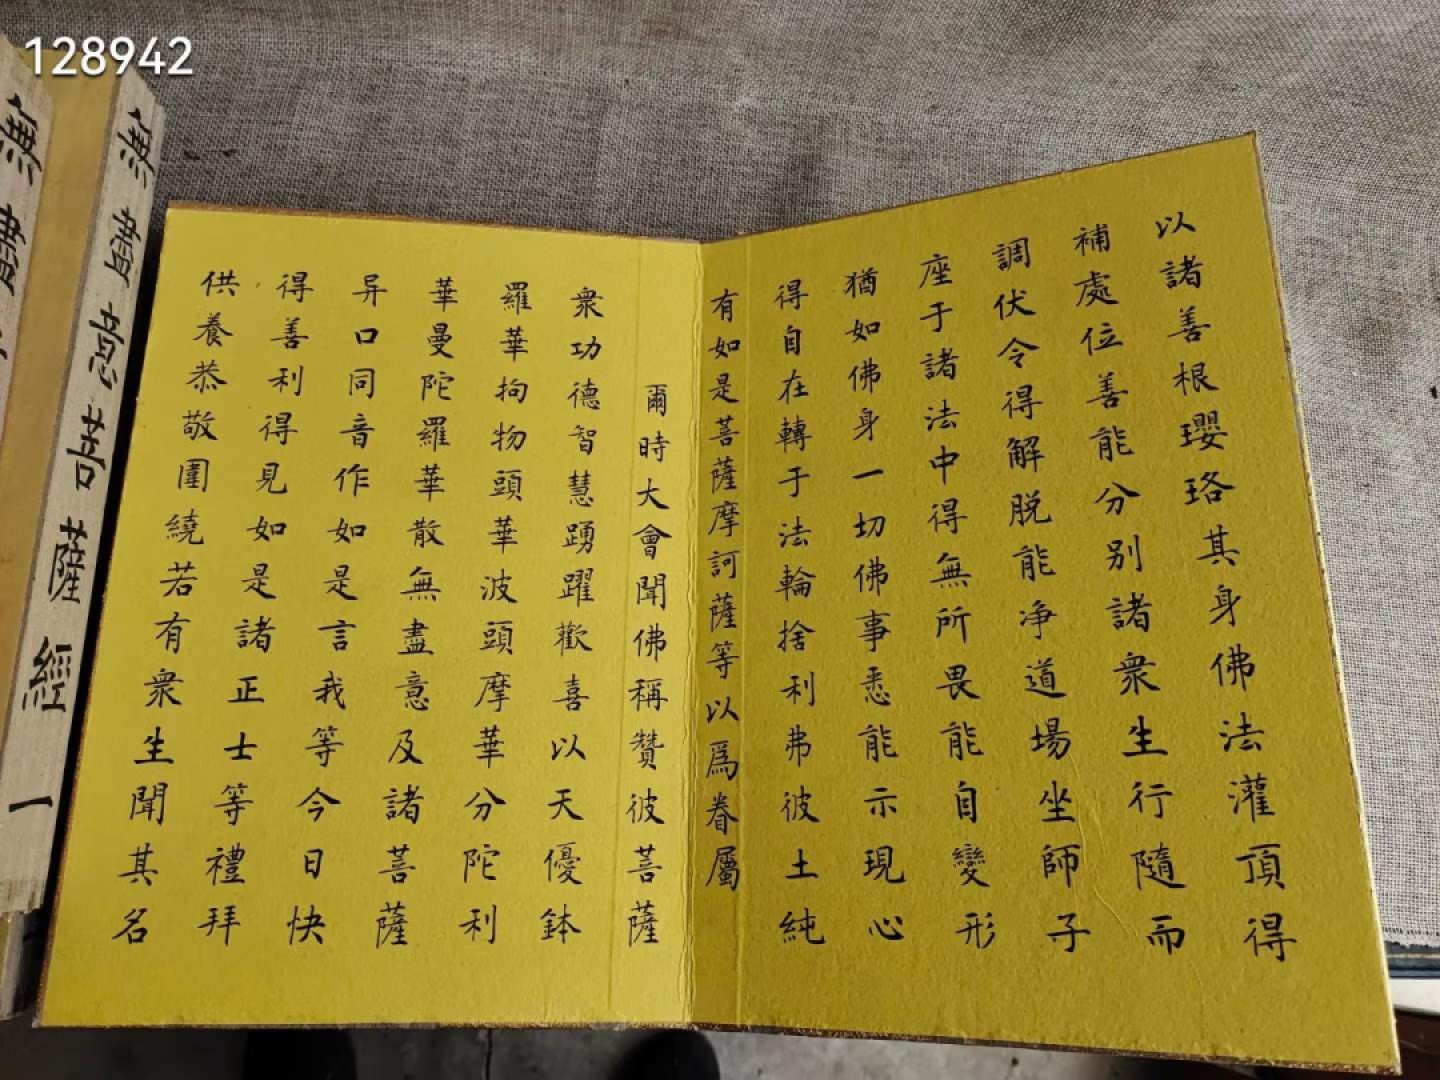 128942
以諸善根瓔珞其身佛法灌頂得
補處位善能分別諸衆生行隨而
調伏令得解脱能净道場坐師子
座于諸法中得無所畏能自變形
猶如佛身一切佛事悉能示現心
得自在轉于法輪舍利弗彼土純
有如是菩薩摩訶薩等以爲眷屬
爾時大會聞佛稱贊彼菩薩
衆功德智慧踴躍歡喜以天優鉢
羅華拘物頭華波頭摩華分陀利
華曼陀羅華散無盡意及諸菩薩
异口同音作如是言我等今日快
得善利得見如是諸正士等禮拜
供養恭敬圍繞若有衆生聞其名
無盡意菩薩經 一
無盡